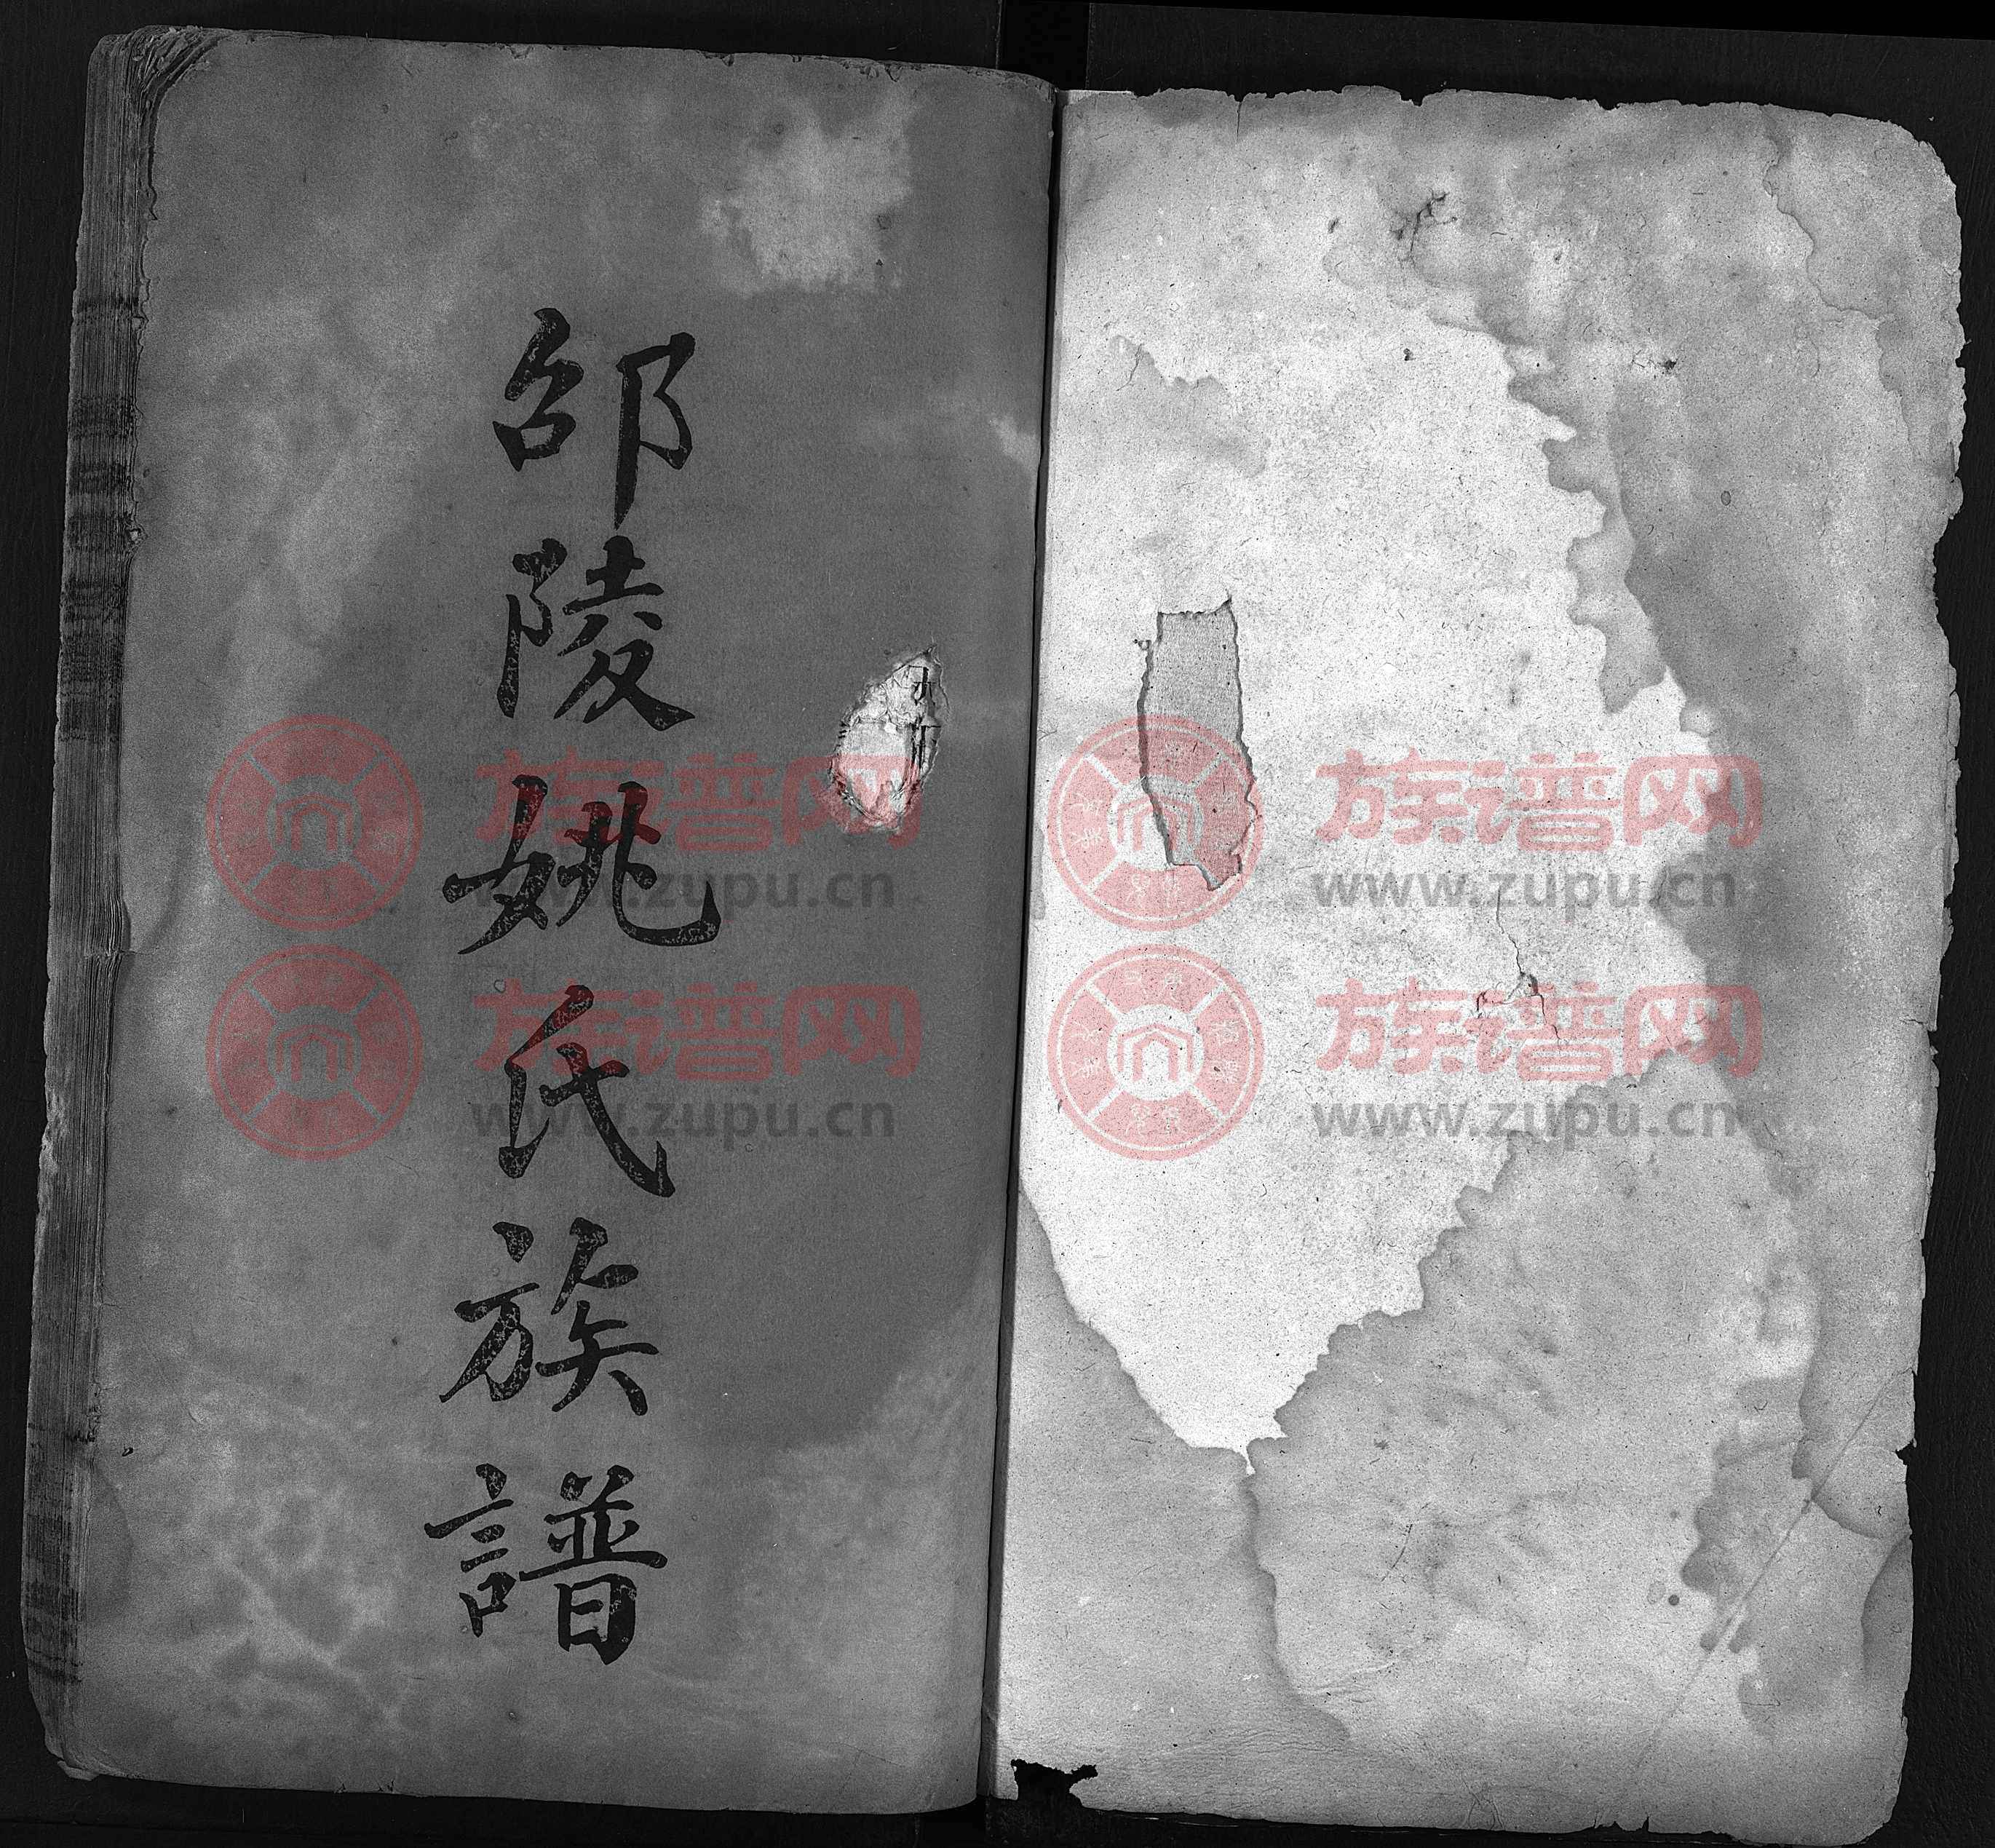 邵陵姚氏族譜
族谱网
www.zupu.cn
族谱网
www.zupu.cn
族谱网
www.zupu.cn
族谱网
www.zupu.cn